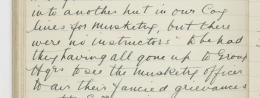 into another hut in our Coy
lines for musketry, but there
were no instructors. We had
they having all gone up to Group
Hqrs to see the musketry officer
to air their fancied grievances